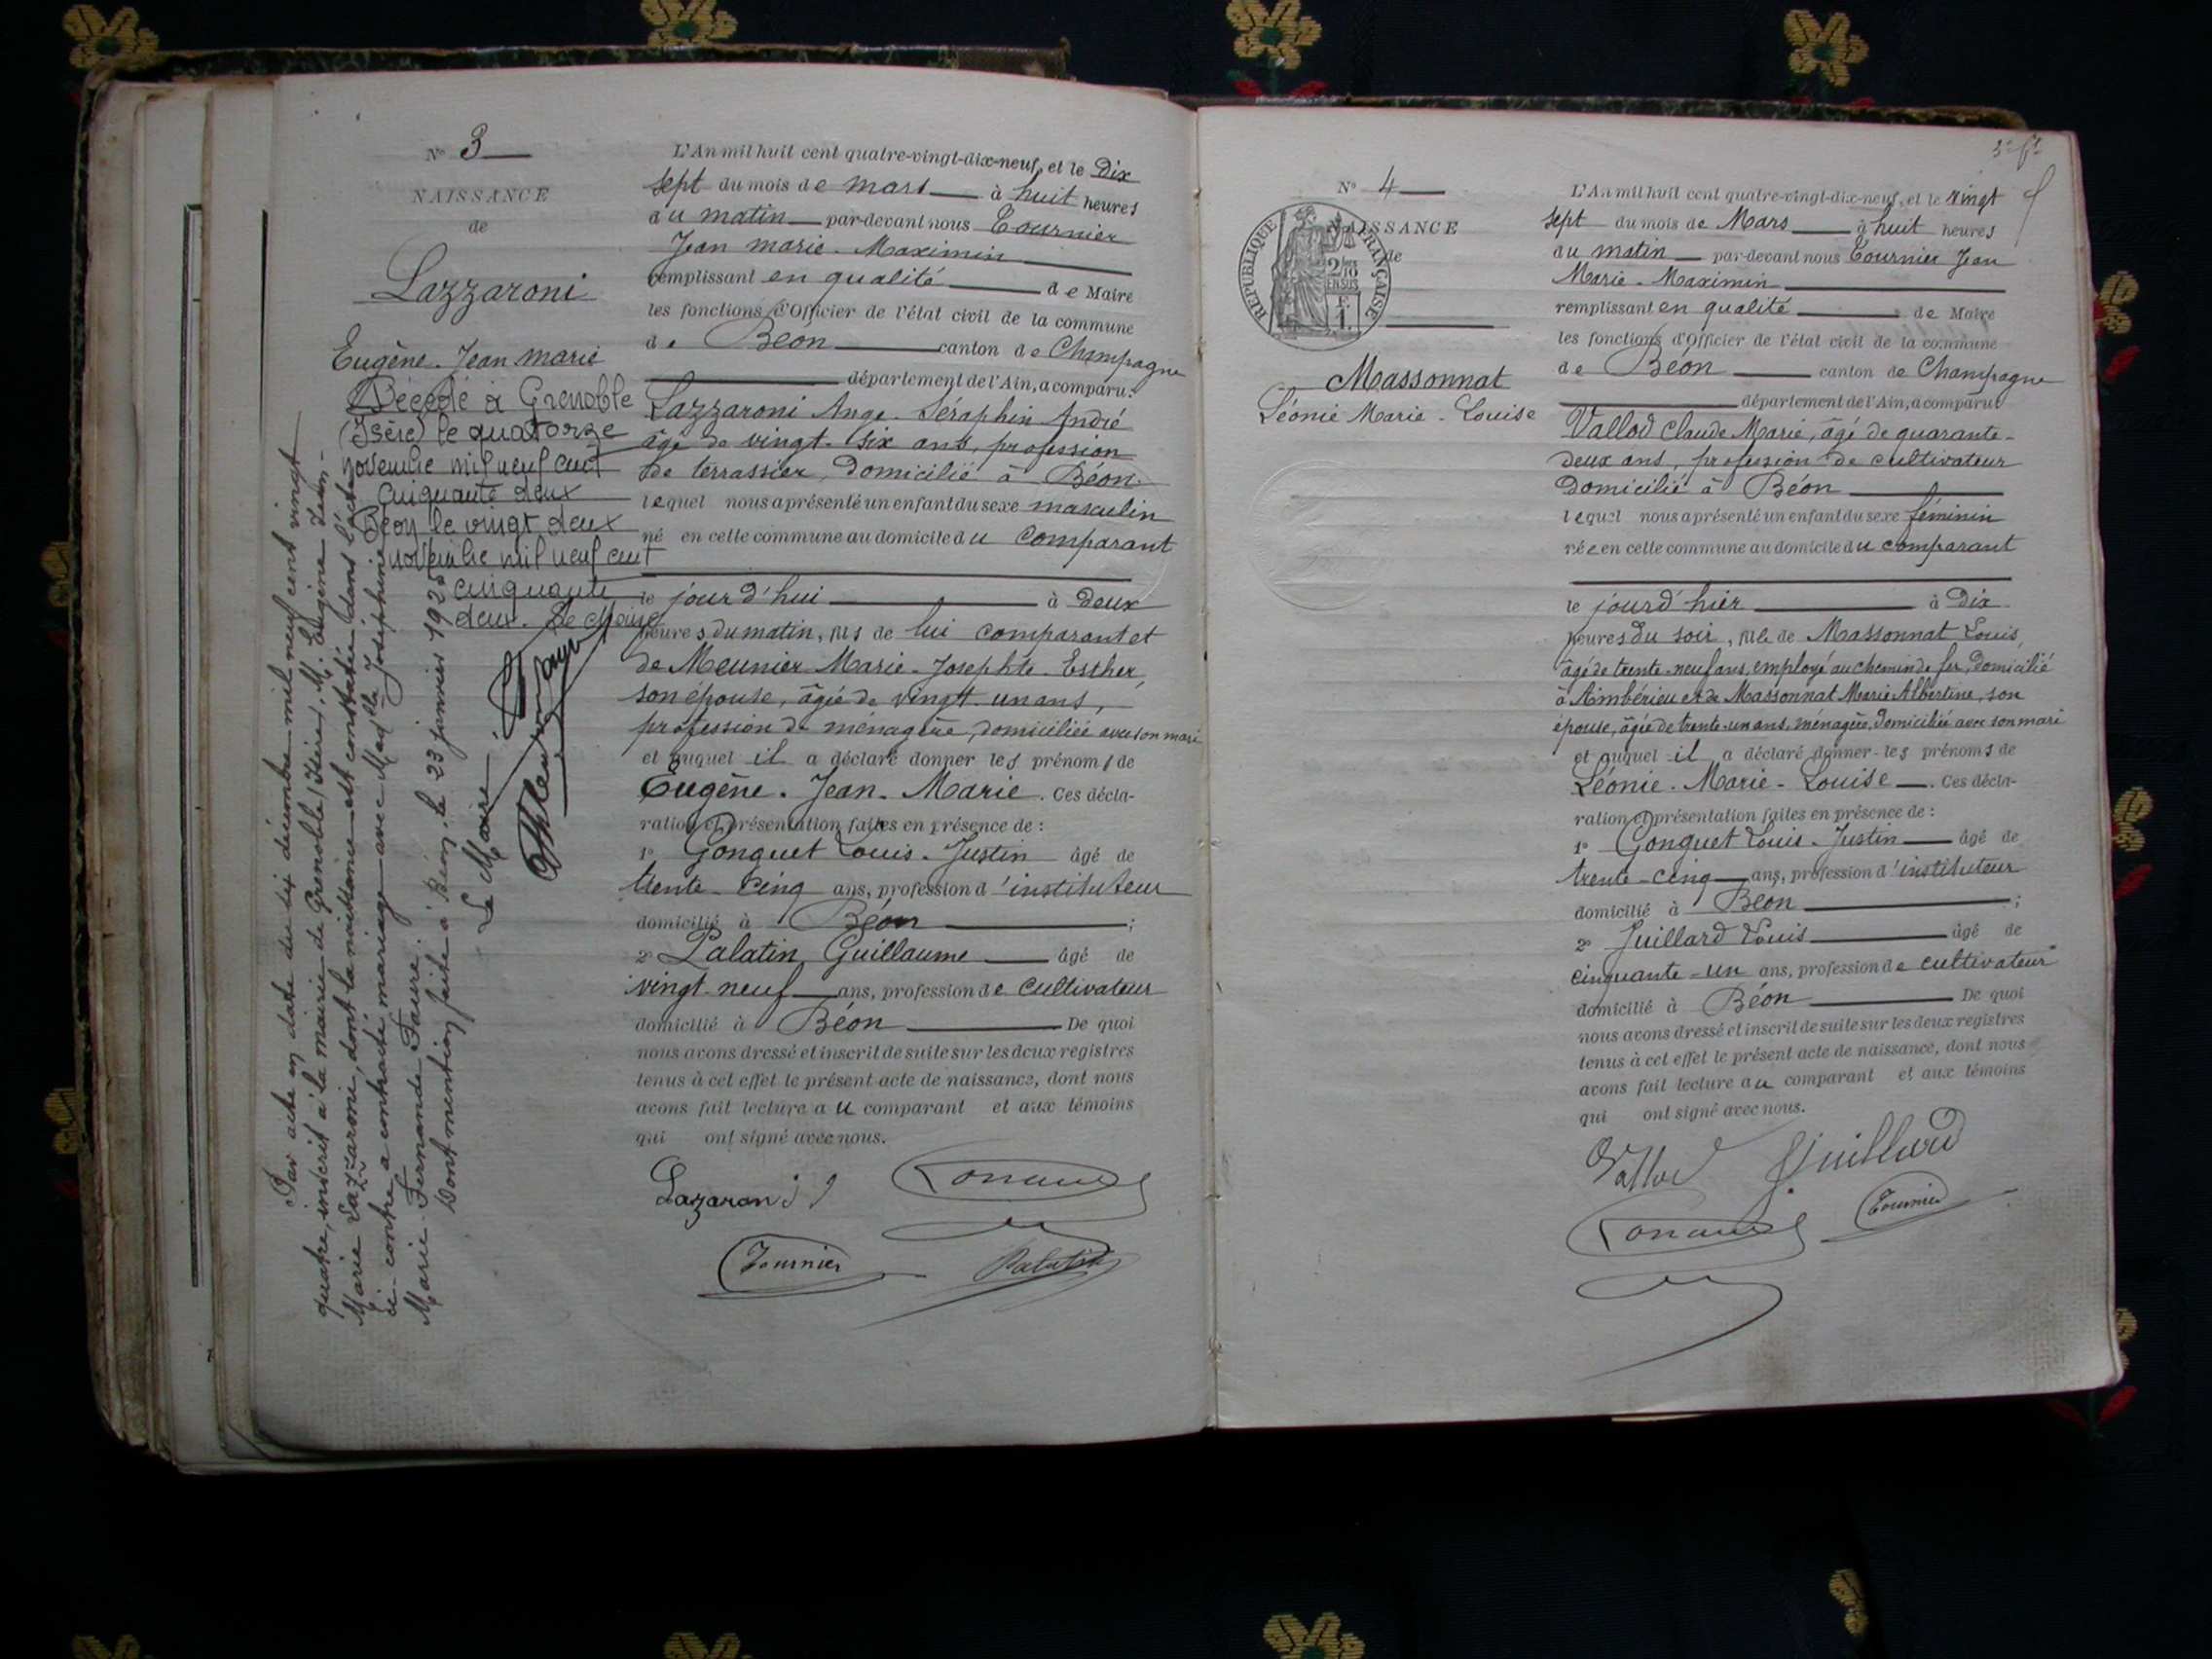 N° 3
NAISSANCE
de
Lazzaroni
Eugène. Jean Marie
Décédé à Grenoble
(Isère) le quatorze
novembre mil neuf cent
cinquante deux
Béon le vingt deux
novembre mil neuf cent
cinquante
deux. Le Maire
Par acte en date du dix décembre mil neuf cent vingt
quatre, inscrit à la mairie de Grenoble, (Isère), M. Eugène Jean-
Marie Lazzaroni, dont la naissance est constatée dans l'acte
ci-contre a contracté mariage avec Mad^lle Joséphine
Marie-Fernande Faure.
Dont mention faite à Béon, le 23 janvier 1925
Le Maire.
L'An mil huit cent quatre-vingt-dix-neuf, et le Dix
sept du mois de mars à huit heures
du matin par-devant nous Tournier
Jean Marie. Maximin
remplissant en qualité de Maire
les fonctions d'Officier de l'état civil de la commune
de Béon canton de Champagne
département de l'Ain, a comparu:
Lazzaroni Ange. Séraphin André
âgé de vingt-six ans, profession
de terrassier, domicilié à Béon
lequel nous a présenté un enfant du sexe masculin
né en cette commune au domicile du comparant
le jour d'hui à Deux
heures du matin, fils de lui comparant et
de Meunier Marie-Josephte. Esther,
son épouse, âgée de vingt-un ans,
profession de ménagère, domiciliée avec son mari
et auquel il a déclaré donner les prénoms de
Eugène. Jean. Marie. Ces décla-
ration et présentation faites en présence de :
1° Gonguet Louis. Justin âgé de
trente-cinq ans, profession d'instituteur
domicilié à Béon ;
2° Palatin Guillaume âgé de
vingt-neuf ans, profession de cultivateur
domicilié à Béon De quoi
nous avons dressé et inscrit de suite sur les deux registres
tenus à cet effet le présent acte de naissance, dont nous
avons fait lecture au comparant et aux témoins
qui ont signé avec nous.
Lazaroni
Tournier Palatin
3e ft
N° 4
NAISSANCE
de
RÉPUBLIQUE FRANÇAISE
2/10 EN SUS
F. 1.
Massonnat
Léonie Marie-Louise
L'An mil huit cent quatre-vingt-dix-neuf, et le vingt
sept du mois de Mars à huit heures
du matin par-devant nous Tournier Jean
Marie-Maximin
remplissant en qualité de Maire
les fonctions d'Officier de l'état civil de la commune
de Béon canton de Champagne
département de l'Ain, a comparu
Vallod Claude Marie, âgé de quarante-
deux ans, profession de cultivateur
domicilié à Béon
lequel nous a présenté un enfant du sexe féminin
née en cette commune au domicile du comparant
le jour d'hier à Dix
heures du soir, fille de Massonnat Louis,
âgé de trente-neuf ans, employé au chemin de fer, domicilié
à Ambérieu et de Massonnat Marie Albertine, son
épouse, âgée de trente-un ans, ménagère, domiciliée avec son mari
et auquel il a déclaré donner les prénoms de
Léonie-Marie-Louise. Ces décla-
ration et présentation faites en présence de :
1° Gonguet Louis-Justin âgé de
trente-cinq ans, profession d'instituteur
domicilié à Béon ;
2° Juillard Louis âgé de
cinquante-un ans, profession de cultivateur
domicilié à Béon De quoi
nous avons dressé et inscrit de suite sur les deux registres
tenus à cet effet le présent acte de naissance, dont nous
avons fait lecture au comparant et aux témoins
qui ont signé avec nous.
Vallod Juillard
Tournier